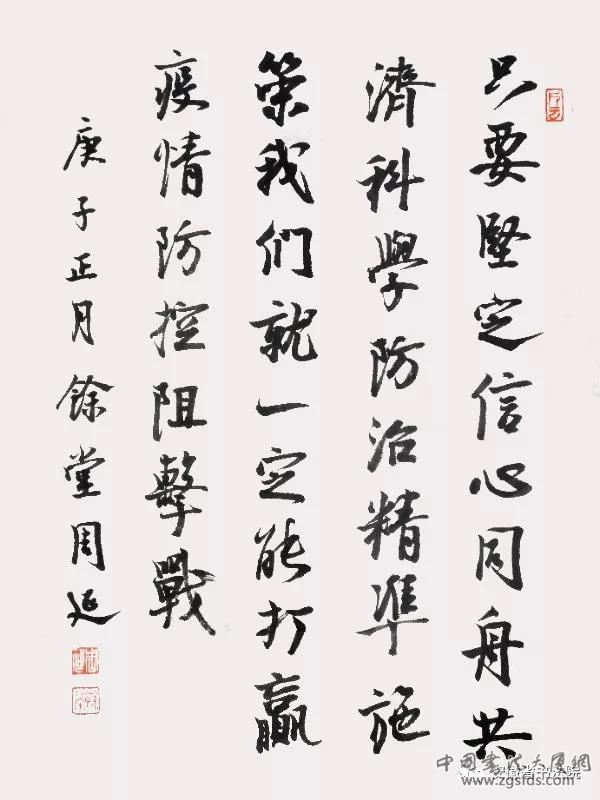 只要堅定信心同舟共
濟科學防治精準施
策我们就一定能打贏
疫情防控阻擊戰
庚子正月餘堂周延
中国書法大厦網
www.zgsfds.com